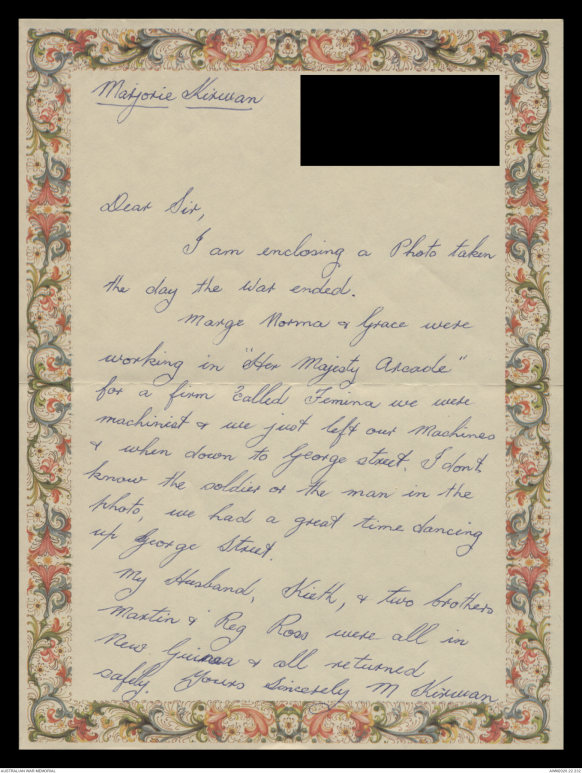 Marjorie Kirwan
Dear Sir,
I am enclosing a Photo taken
the day the War ended.
Marge Norma & Grace were
working in "Her Majesty Arcade"
for a firm Called Femina we were
machinist & we just left our Machines
& when down to George street. I dont
know the soldier or the man in the
photo, we had a great time dancing
up George Street.
My Husband, Kieth, & two brothers
Martin & Reg Ross were all in
New Guinea & all returned
safely. Yours Sincerely M Kirwan
AUSTRALIAN WAR MEMORIAL
AWM2020.22.232